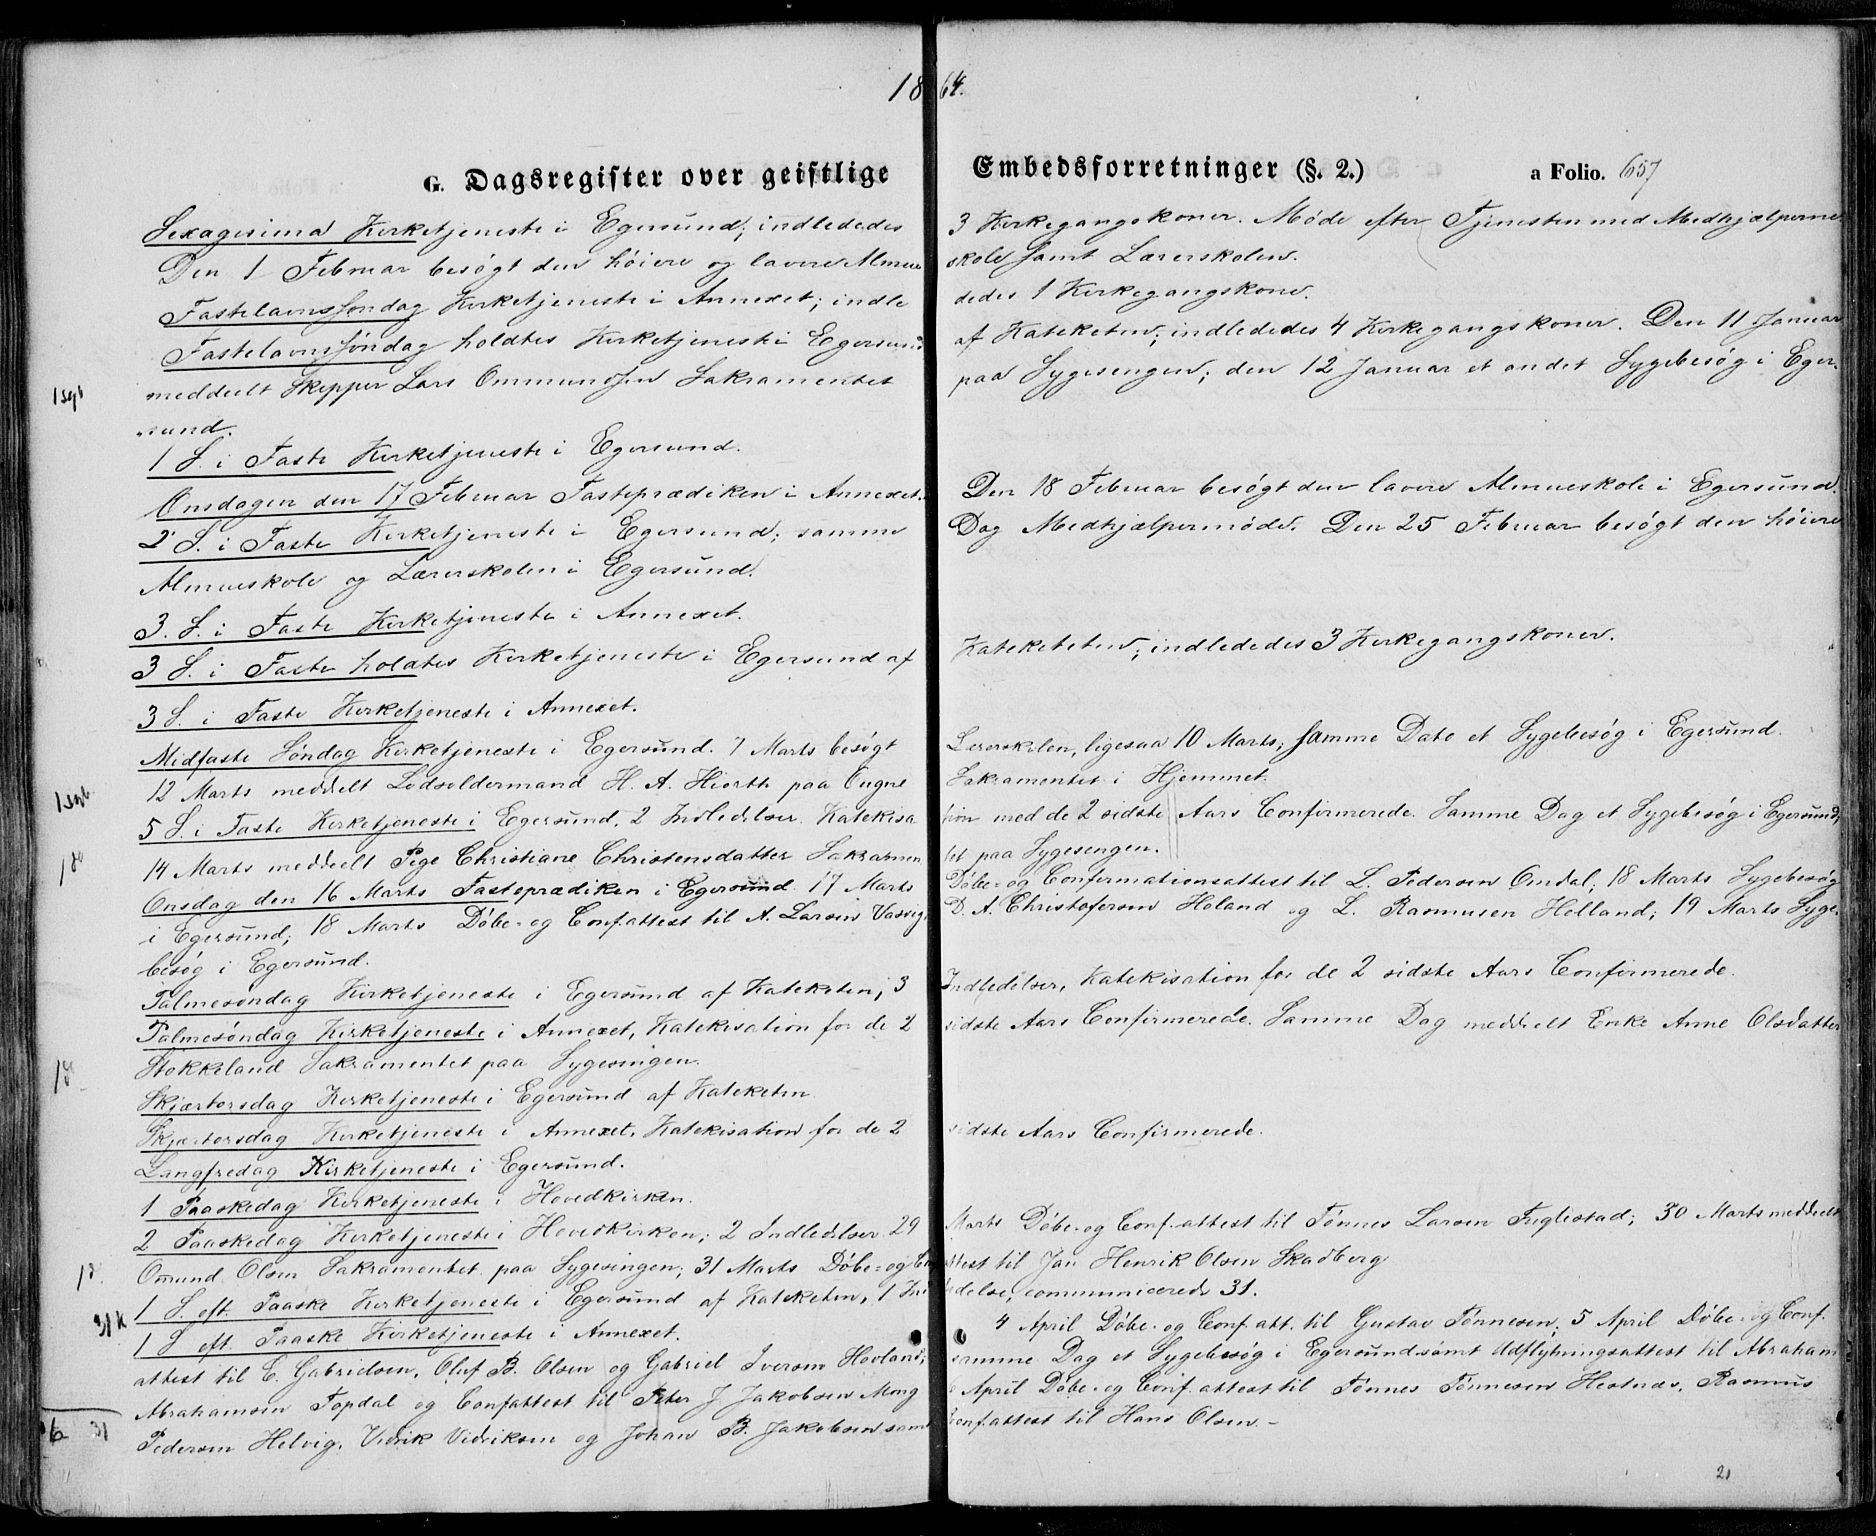 1864.
G. Dagsregister over geistlige Embedsforretninger (§. 2.) a Folio. 657
Sexagesima Kirketjeneste i Egersund; indlededes 3 Kirkegangskoner. Møde efter Tjenesten med Medhjælperne
Den 1 Februar besøgt den høiere og lavere Almue skole samt Lærerskolen.
Fastelavnssøndag Kirketjeneste i Annexet; indle dedes 1 Kirkegangskone.
Fastelavnssøndag holdtes Kirketjeneste i Egersund af Kateketen; indlededes 4 Kirkegangskoner. Den 11 Januar
1 sgb meddeelt Skipper Lars Ommundsen Sakramentet paa Sygesengen; den 12 Januar et andet Sygebesøg i Eger-
sund.
1 S. i Faste Kirketjeneste i Egersund.
Onsdagen den 17 Februar Fasteprædiken i Annexet. Den 18 Februar besøgt den lavere Almueskole i Egersund.
2 S. i Faste Kirketjeneste i Egersund; samme Dag Medhjælpermøde. Den 25 Februar besøgt den høiere
Almueskole og Lærerskolen i Egersund.
3. S. i Faste Kirketjeneste i Annexet.
3 S. i Faste holdtes Kirketjeneste i Egersund af Kateketen; indlededes 3 Kirkegangskoner.
3 S. i Faste Kirketjeneste i Annexet.
Midfaste Søndag Kirketjeneste i Egersund. 7 Marts besøgt Lærerskolen, ligesaa 10 Marts; samme Dato et Sygebesøg i Egersund.
1 sgb 12 Marts meddelt Lodsoldermand H. A. Hiorth paa Ougne Sakramentet i Hjemmet.
5 S. i Faste Kirketjeneste i Egersund, 2 Indledelser. Katekisa tion med de 2 sidste Aars Confirmerede. Samme Dag et Sygebesøg i Egersund,
14 Marts meddeelt Pige Christiane Christensdatter Sakramen tet paa Sygesengen.
Onsdag den 16 Marts Fasteprædiken i Egersund. 17 Marts Døbe- og Confirmationsattest til L. Pedersen Omdal; 18 Marts Sygebesøg
i Egersund; 18 Marts Døbe- og Conf.attest til A. Larsen Vasvig, D. A. Christofersen Høland og L. Rasmusen Helland; 19 Marts Syge-
besøg i Egersund.
Palmesøndag Kirketjeneste i Egersund af Kateketen; 3 Indledelser, Katekisation for de 2 sidste Aars Confirmerede.
Palmesøndag Kirketjeneste i Annexet, Katekisation for de 2 sidste Aars Confirmerede. Samme Dag meddeelt Enke Anne Olsdatter
Stokkeland Sakramentet paa Sygesengen.
Skjærtorsdag Kirketjeneste i Egersund af Kateketen
Skjærtorsdag Kirketjeneste i Annexet, Katekisation for de 2 sidste Aars Confirmerede.
Langfredag Kirketjeneste i Egersund.
1 Paaskedag Kirketjeneste i Hovedkirken.
2 Paaskedag Kirketjeneste i Hovedkirken; 2 Indledelser. 29 Marts Døbe- og Conf.attest til Tønnes Larsen Fuglestad; 30 Marts meddeelt
Omund Olsen Sakramentet paa Sygesengen; 31 Marts Døbe- og C attest til Jan Henrik Olsen Skadberg
1 S. eft. Paaske Kirketjeneste i Egersund af Kateketen, 1 Ind ledelse, communicerede 31.
1 S. eft. Paaske Kirketjeneste i Annexet. 4 April Døbe- og Conf. att. til Gustav Tønnesen; 5 April Døbe- og Conf.
attest til E. Gabrielsen, Oluf B. Olsen og Gabriel Iversen Hovland; samme Dag et Sygebesøg i Egersund samt Udflytningsattest til Abraham
Abrahamsen Topdal og Confattest til Peter J Jakobsen Mong April Døbe- og Conf. attest til Tønnes Tønnesen Hestnæs, Rasmus
6 31 Pedersen Helvig, Vidrik Vidriksen og Johan B. Jakobsen samt Conf.attest til Hans Olsen.-
21